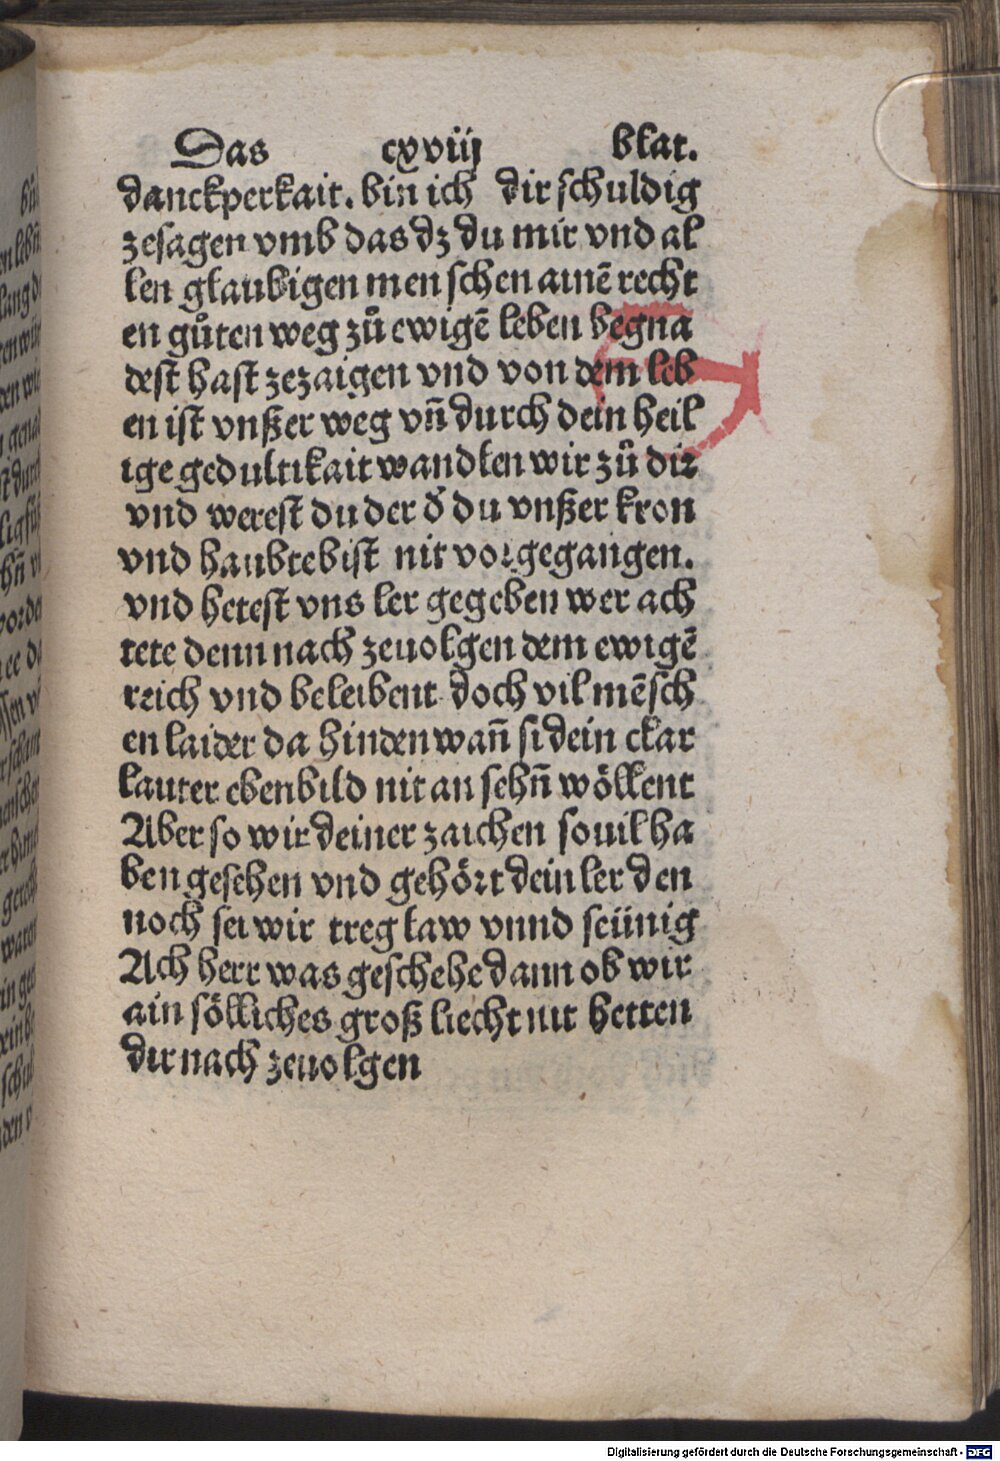 Das cxviij blat.
danckperkait. bin ich dir schuldig
zesagen vmb das dz du mir vnd al
len glaubigen menschen ainē recht
en gůten weg zů ewigē leben begna
dest hast zezaigen vnd von dem leb
en ist vnßer weg vñ durch dein heil
ige gedultikait wandlen wir zů dir
vnd werest du der d̕ du vnßer kron
vnd haubte bist nit vorgegangen.
vnd hetest vns ler gegeben wer ach
tete denn nach zeuolgen dem ewigē
reich vnd beleibent doch vil mēsch
en laider da hinden wañ si dein clar
lauter ebenbild nit an sehñ wöllent
Aber so wir deiner zaichen souil ha
ben gesehen vnd gehört dein ler den
noch sei wir treg law vnnd seünig
Ach herr was geschehe dann ob wir
ain sölliches groß liecht nit hetten
dir nach zeuolgen
Digitalisierung gefördert durch die Deutsche Forschungsgemeinschaft - DFG